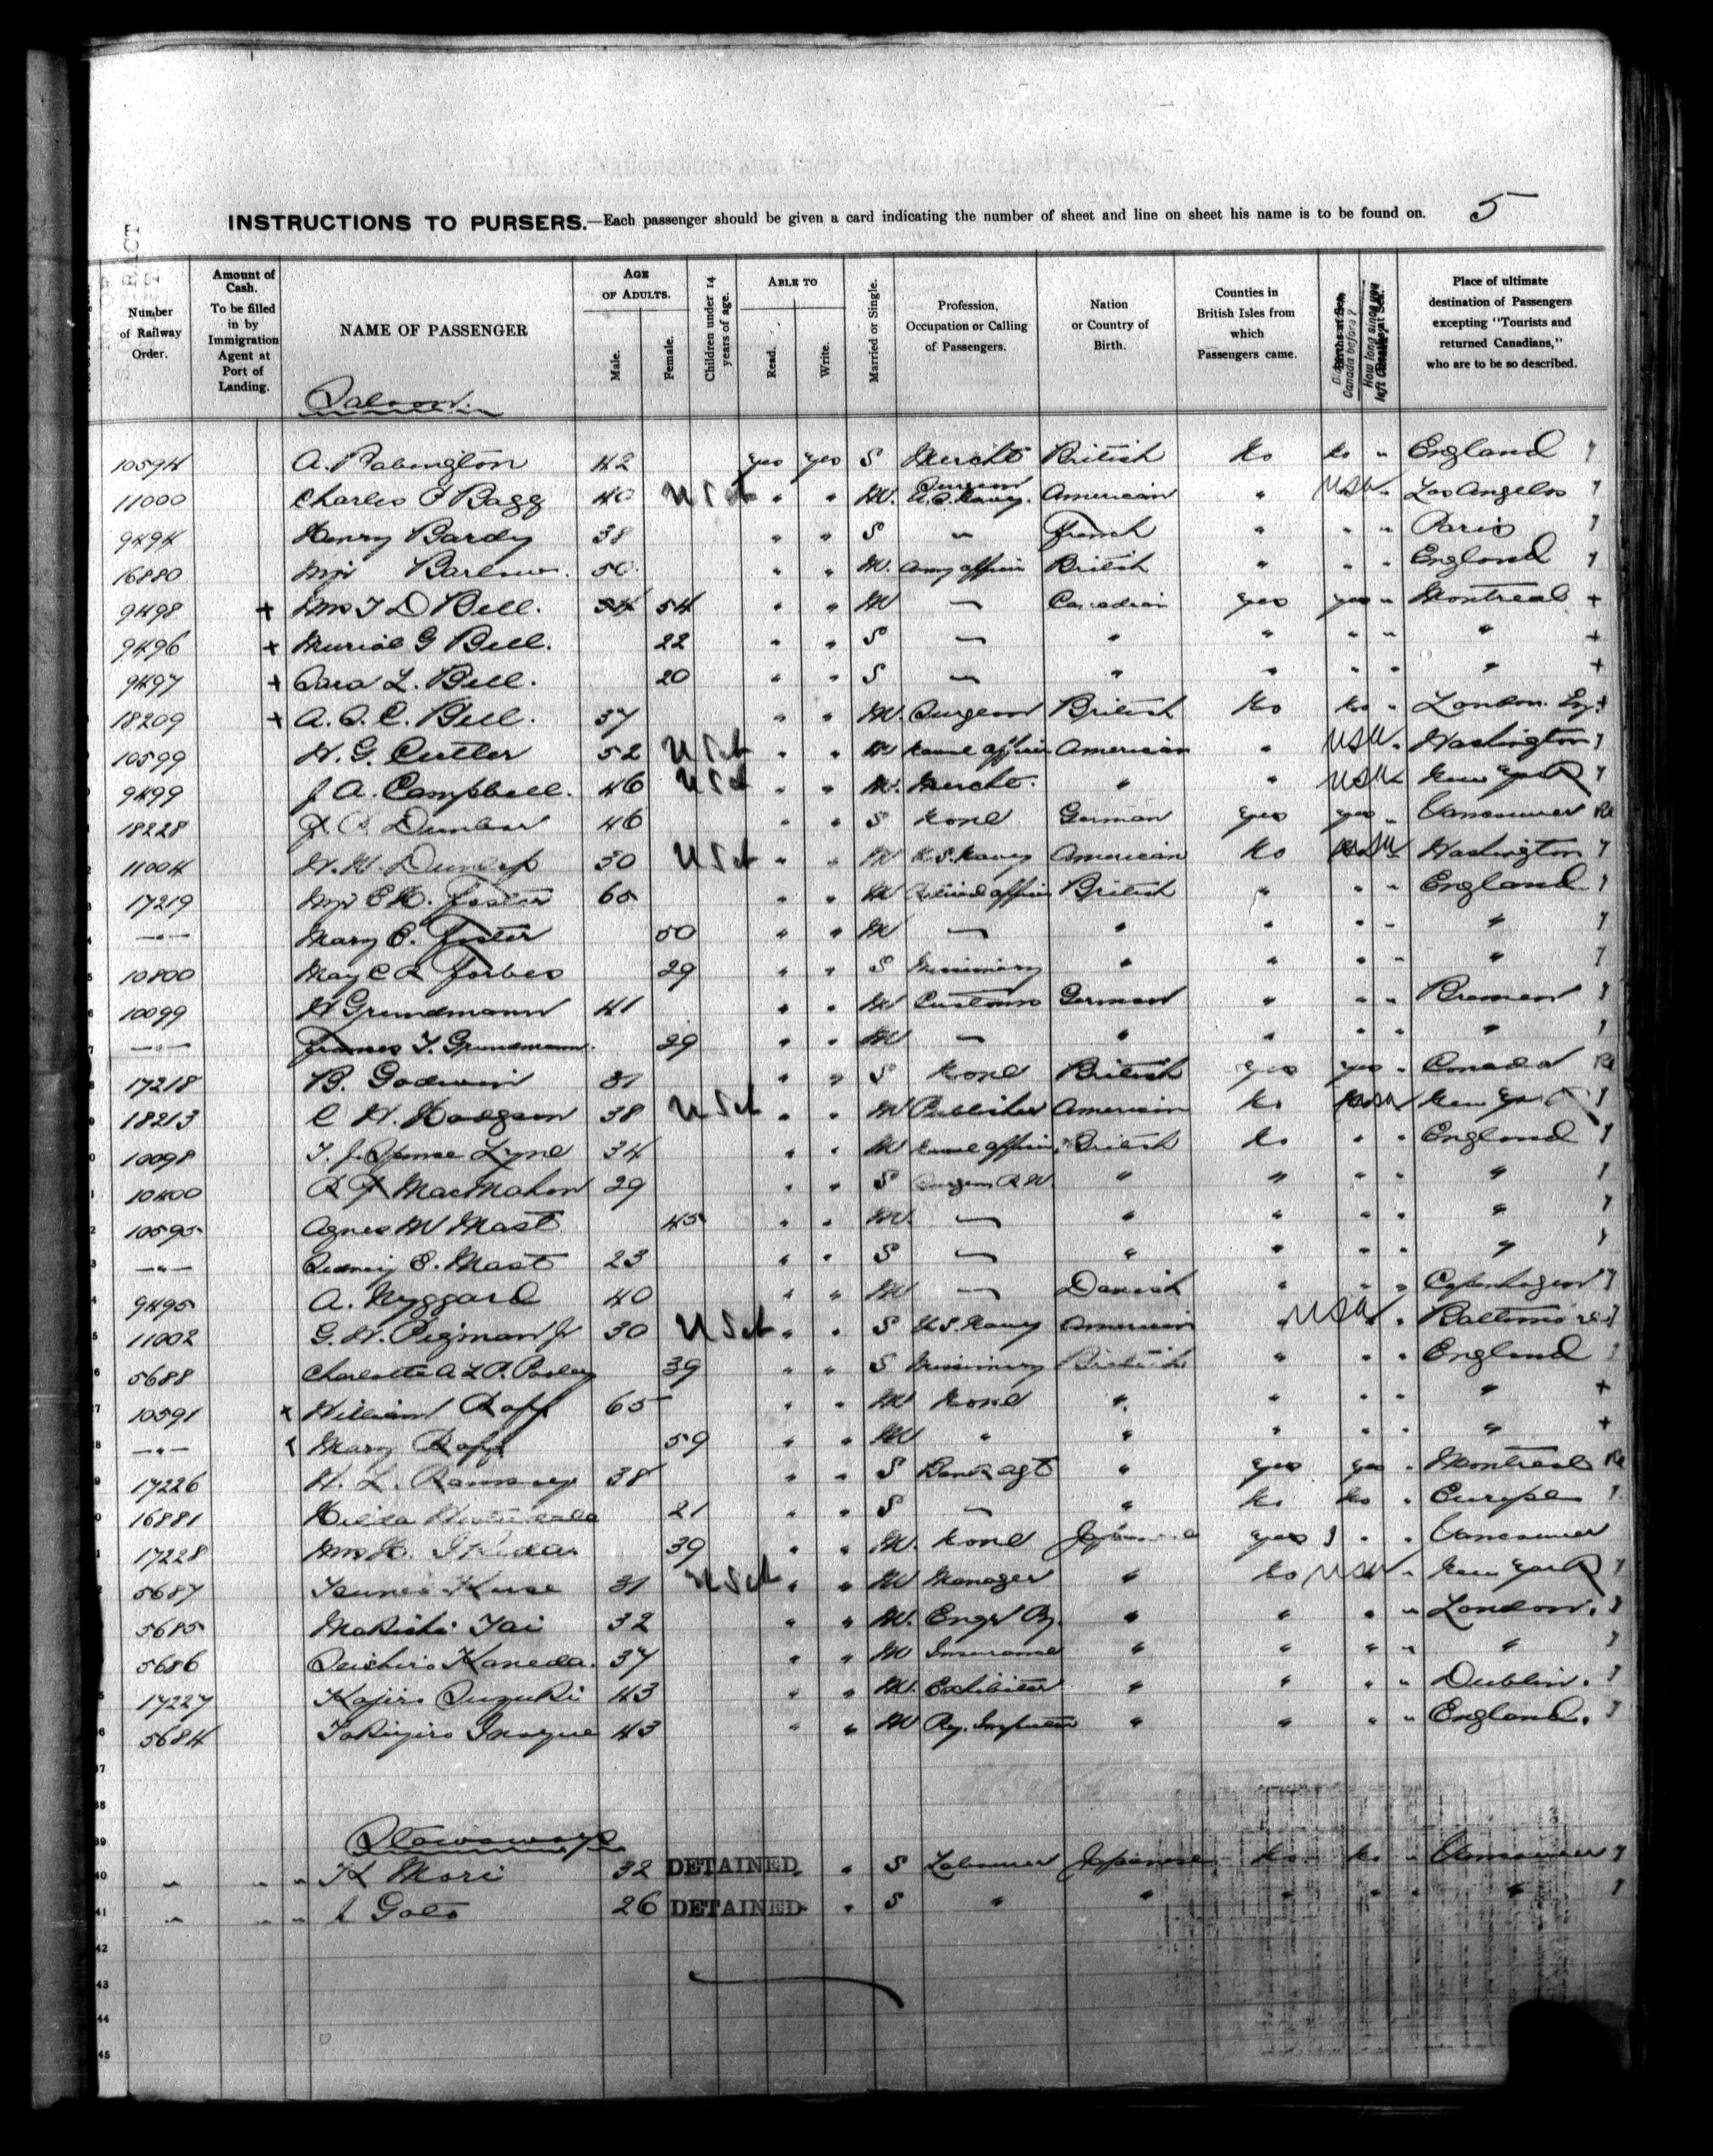 5
INSTRUCTIONS TO PURSERS.—Each passenger should be given a card indicating the number of sheet and line on sheet his name is to be found on.
Number of Railway Order.
Amount of Cash. To be filled in by Immigration Agent at Port of Landing.
NAME OF PASSENGER
AGE OF ADULTS.
Male.
Female.
Children under 14 years of age.
ABLE TO
Read.
Write.
Married or Single.
Profession, Occupation or Calling of Passengers.
Nation or Country of Birth.
Counties in British Isles from which Passengers came.
Place of ultimate destination of Passengers excepting "Tourists and returned Canadians," who are to be so described.
Saloon.
10594 A. Babington 42 yes yes S Mercht British No No " England
11000 Charles E Bagg 40 USct " " M. Surgeon U.S. Navy. American " USA " Los Angelos
9494 Henry Bardy 38 " " S " French " " " Paris
16880 Mjr Barlow. 50 " " M. Army officer British " " " England
9498 + Mrs T D Bell. 54 54 " " M — Canadian yes yes " Montreal +
9496 + Muriel G Bell. 22 " " S — " " " " " +
9497 + Cara L. Bell. 20 " " S — " " " " " +
18209 + A. S. C. Bell. 37 " " M. Surgeon British No No " London. Eng. +
10599 W. G. Cutler 52 USct " " M Naval officer American " USA " Washington
9499 J A. Campbell. 46 USct " " M. Mercht. " " USA New York
18228 Dunbar 46 " " S None German yes yes " Vancouver Re
11004 W. H. Dunlap 30 USct " " M U.S. Navy American No USA Washington
17219 Mjr E H. Foster 65 " " M Retired officer British " " " England
—"— Mary E. Foster 50 " " M — " " " " "
10800 May C R Forbes 29 " " S Missionary " " " " "
10099 H Grundmann 41 " " M Customs German " " " Bremen
—"— Frances Y. Grundmann. 29 " " M — " " " " "
17218 B. Godwin 31 " " S None British yes yes " Canada Re
18213 C W. Hodgson 38 USct " " M Publisher American No USA New York
10098 T. J. Spence Lyne 34 " " M Naval officer British No " " England
10400 MacMahon 29 " " S Surgeon R.N. " " " " "
10595 Agnes M Mast 45 " " M. — " " " " "
—"— Sidney E. Mast 23 " " S — " " " " "
9495 A. Nyggard 40 " " M — Danish " " " Copenhagen
11002 G. W. Pigman Jr 30 USct " " S U.S. Navy American " USA " Baltimore
5688 Charlotte A L P. Pasley 39 " " S Missionary British " " " England
10591 x William Rapp 65 " " M None " " " " " +
—"— x Mary Rapp 59 " " M " " " " " " +
17226 H. L. Ramsay 38 " " S Bank agt " yes yes " Montreal Re
16881 Hilda 21 " " S — " No No " Europe
17228 Mrs H. 39 " " M. None Japanese yes " " Vancouver
5687 Kuse 31 USct " " M Manager " No USA " New York
5685 Makishi Tai 32 " " M. " " " " London.
5686 Seichiro Kaneda. 37 " " M Insurance " " " " "
17227 Kojiro Suzuki 43 " " M. Exhibitor " " " " Dublin.
5684 Tokijiro Inoyue 43 " " M " " " " England.
Stowaways
" " " K Mori 32 DETAINED " S Labourer Japanese No No " Vancouver
" " " Goto 26 DETAINED " S " " " " " "